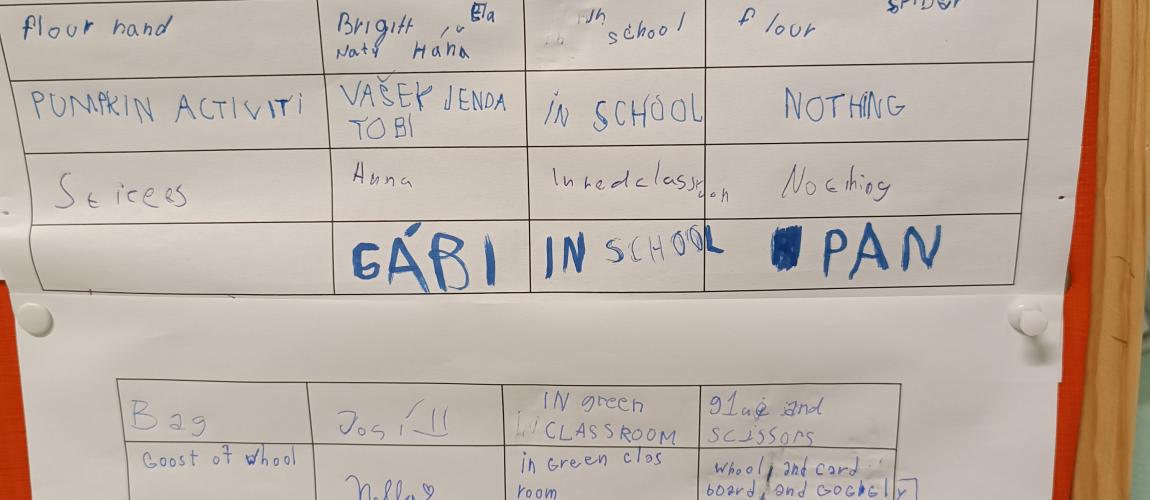 flour hand
Brigitt
Ela
Naty Hana
school
flour
SPIDER
PUMPKIN ACTIVITI
VAŠEK JENDA
TOBI
IN SCHOOL
NOTHING
Anna
In red classroon
Nothing
GÁBI
IN SCHOOL
PAN
Bag
IN green
CLASSROOM
glue and
scissors
Goost of whool
Nella
in Green clas
room
whool, and card
board, and